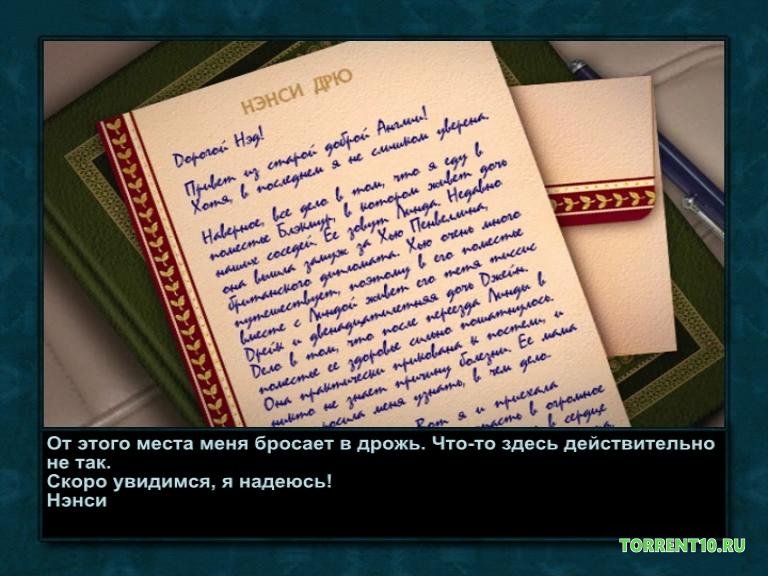 НЭНСИ ДРЮ
Дорогой Нэд!
Привет из старой доброй Англии!
Хотя, в последнем я не слишком уверена.
Наверное, все дело в том, что я еду в
поместье Блэкмур, в котором живет дочь
наших соседей. Ее зовут Линда. Недавно
она вышла замуж за Хью Пенвеллина,
британского дипломата. Хью очень много
путешествует, поэтому в его поместье
вместе с Линдой живет его тетя миссис
Дрейк и двенадцатилетняя дочь Джейн.
Дело в том, что после переезда Линды в
поместье ее здоровье сильно пошатнулось.
Она практически прикована к постели, и
никто не знает причину болезни. Ее мама
просила меня узнать, в чем дело.
Вот я и приехала
в огромное
в сердце
От этого места меня бросает в дрожь. Что-то здесь действительно
не так.
Скоро увидимся, я надеюсь!
Нэнси
TORRENT10.RU